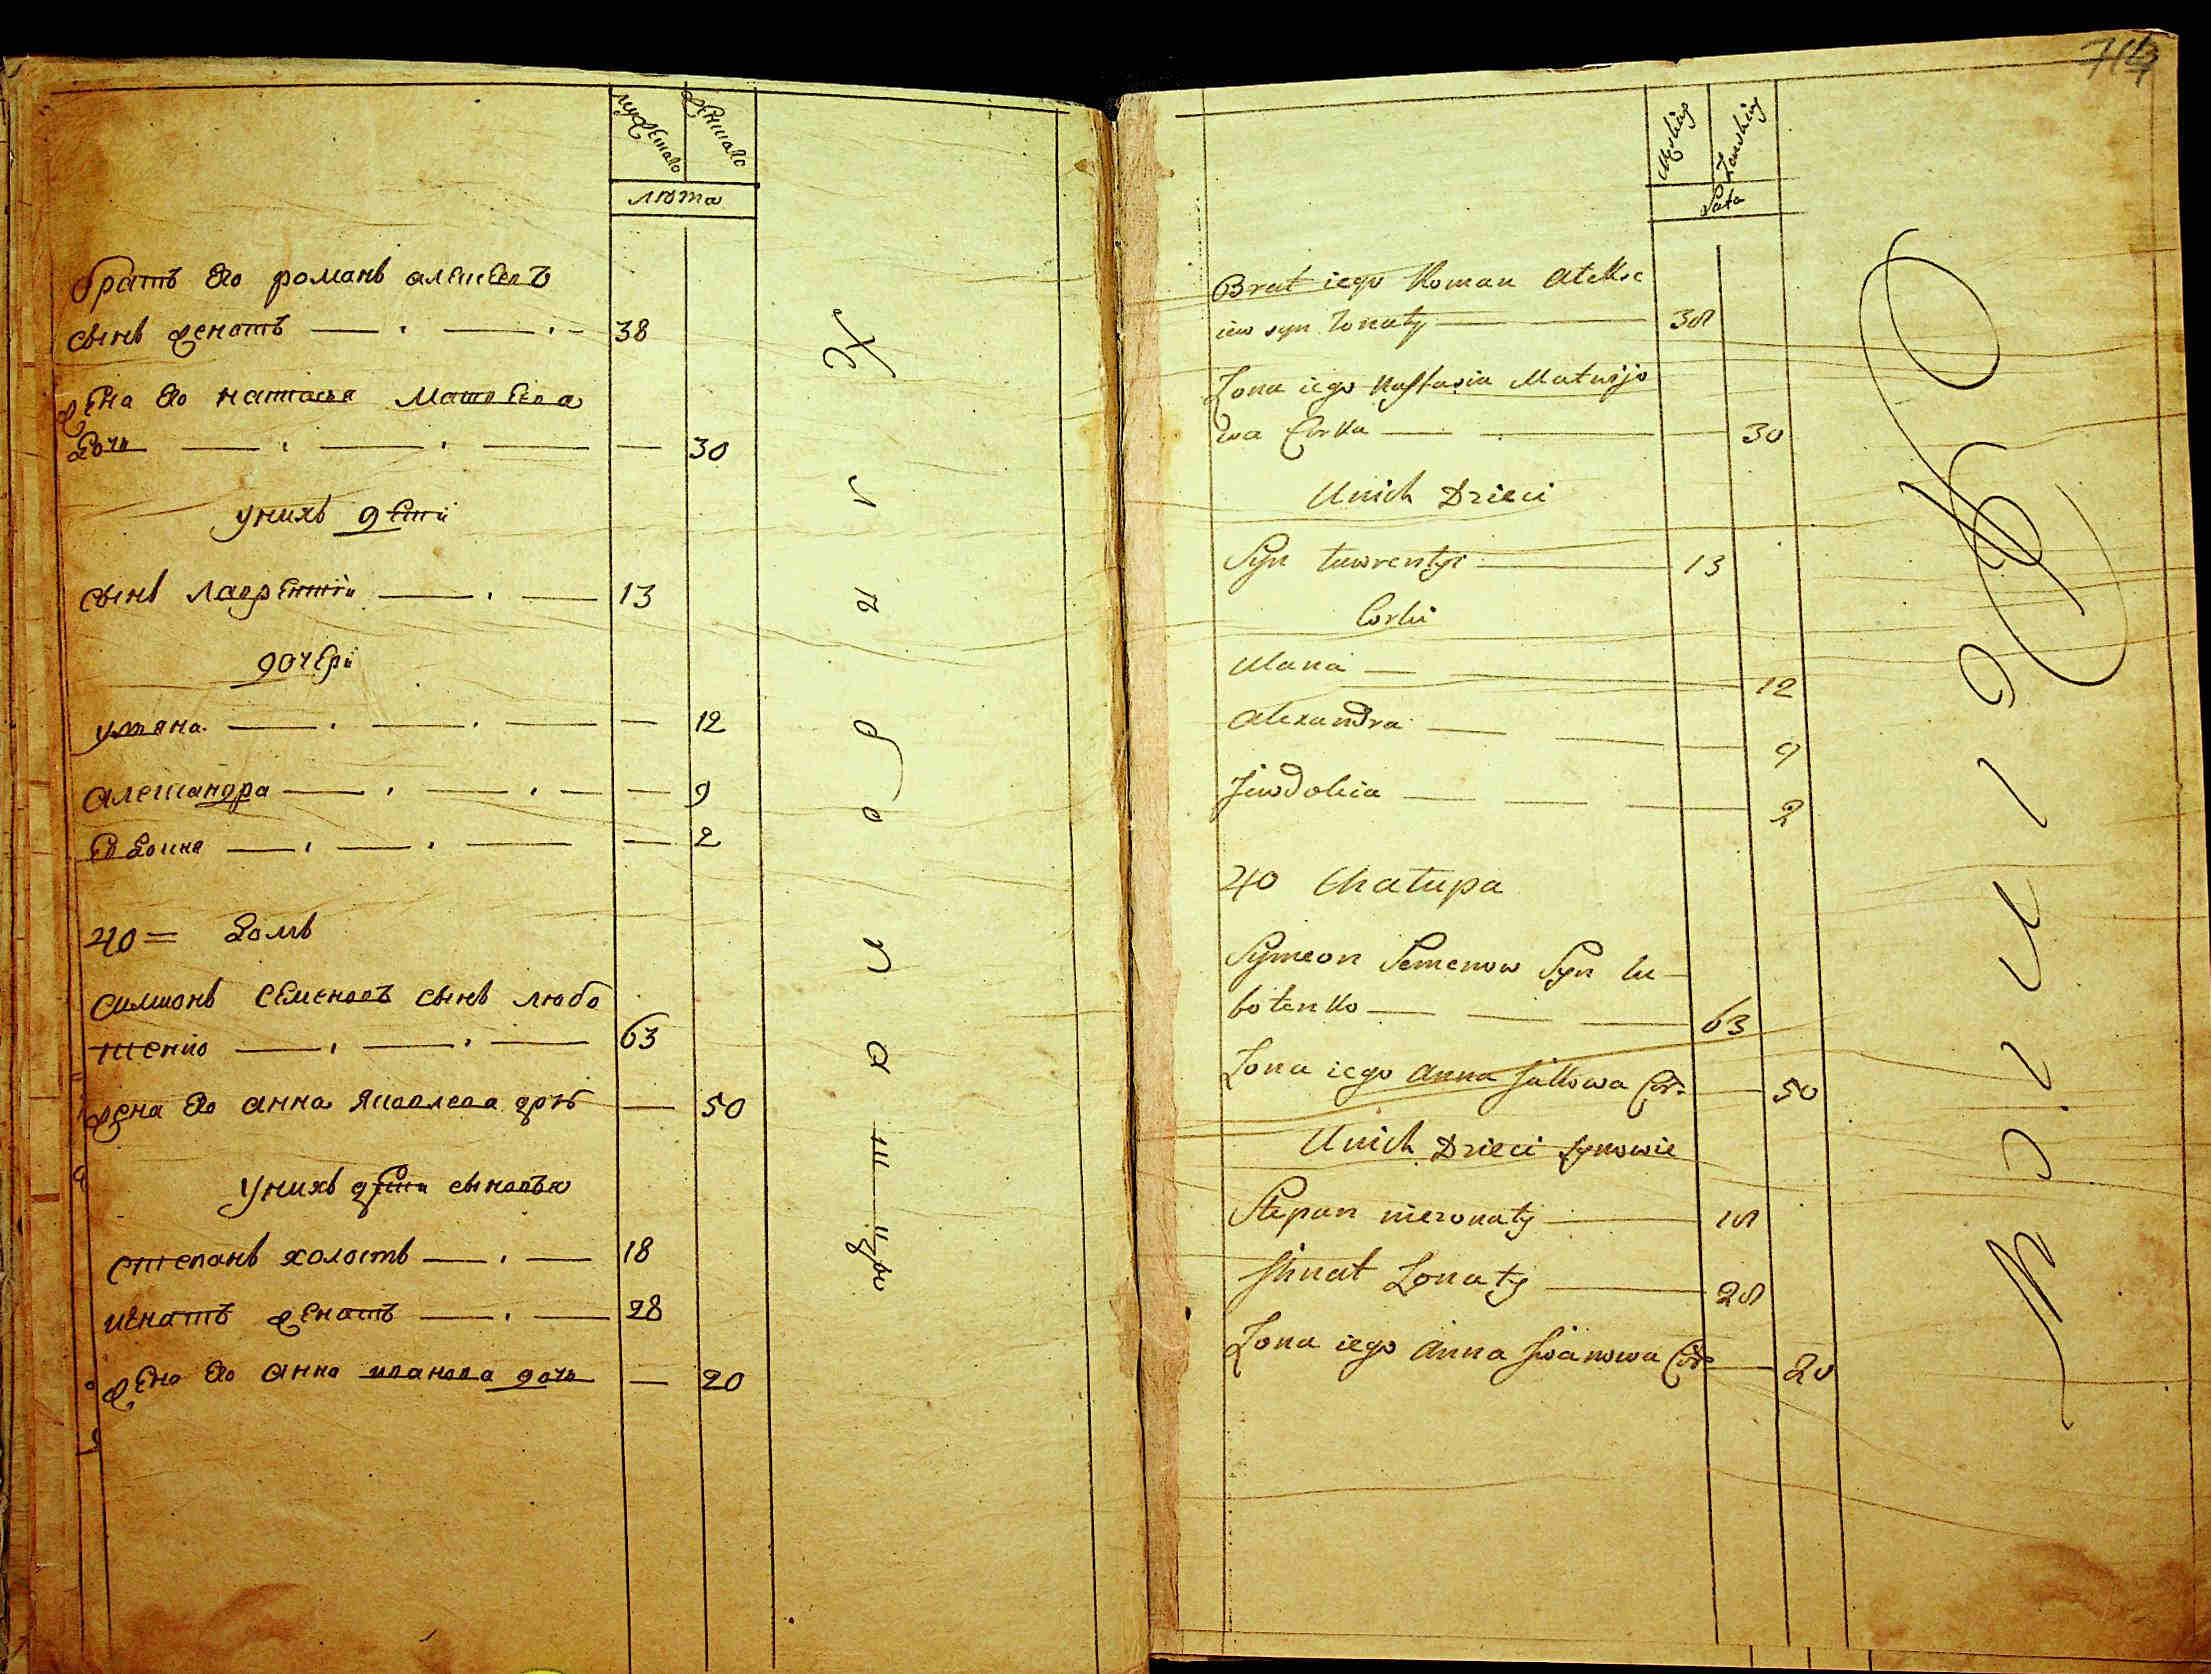 мужеска женска
лѣта
братъ его романъ алексеевъ
сынъ женатъ — . — . — 38
жена его настася матвеева
дочь — . — . — — 30
унихъ дети
сынъ лаврентіи — . — 13
дочери
уляна — . — . — — 12
александра — . — . — — 9
евдокиа — . — . — — 2
40 = домъ
симионъ семеновъ сынъ любо
тенко — . — . — 63
жена его анна яковлева дочь — 50
унихъ дети сыновья
степанъ холостъ — . — 18
игнатъ женатъ — . — 28
жена его анна иванова дочь — 20
Męskiej Żenskiej
Lata
Brat iego Roman Alekse
iew syn żonaty — 38
Zona iego Nastasia Matwije
wa Corka — — — 30
Unich Dzieci
Syn Lawrentyi — 13
Corki
Ulana — — 12
Alexandra — — — 9
Jewdokia — — — 2
40 Chałupa
Symeon Semenow Syn Lu-
botenko — — — 63
Zona iego Anna Jakowa Cor: — 50
Unich Dzieci synowie
Stepan nieżonaty — 18
Ihnat Zonaty — 28
Zona iego Anna Iwanowa Cor — 20